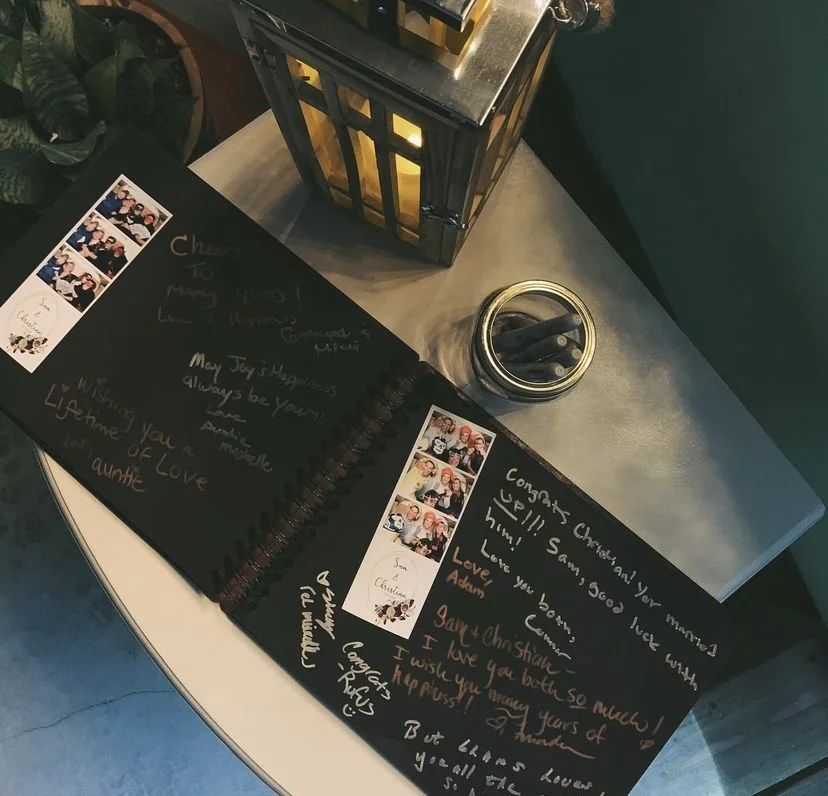 Sam
&
Christian
Cheers
TO
Many years!
Love & Happiness
Grandpa &
May Joy & Happiness
always be yours!
Love
Auntie
michelle
Wishing you a
Lifetime of Love
auntie
Sam
&
Christian
Congrats Christian! Yer married
UP!!! Sam, good luck with
him!
Love you both,
Connor
Love,
Adam
Sam & Christian -
I love you both so much!
I wish you many years of
happiness!!
Congrats
-Rufus
But
Loves
you all the